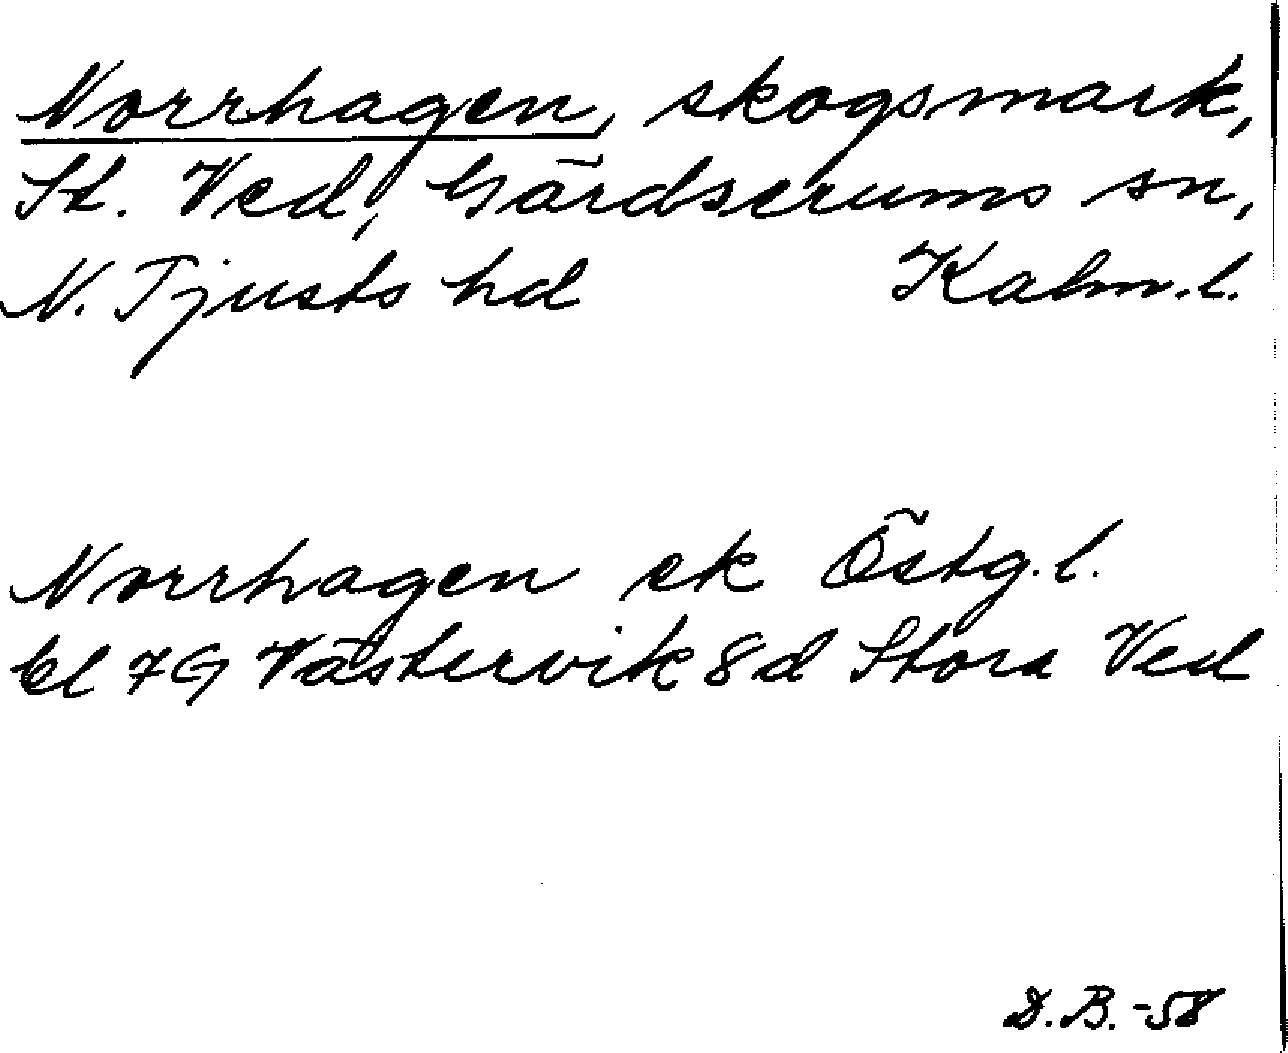 Norrhagen, skogsmark,
St. Ved, Gärdserums sn,
N. Tjusts hd Kalm.l.
Norrhagen ek Östg.l.
bl 7G Västervik 8d Stora Ved
D.B.-58